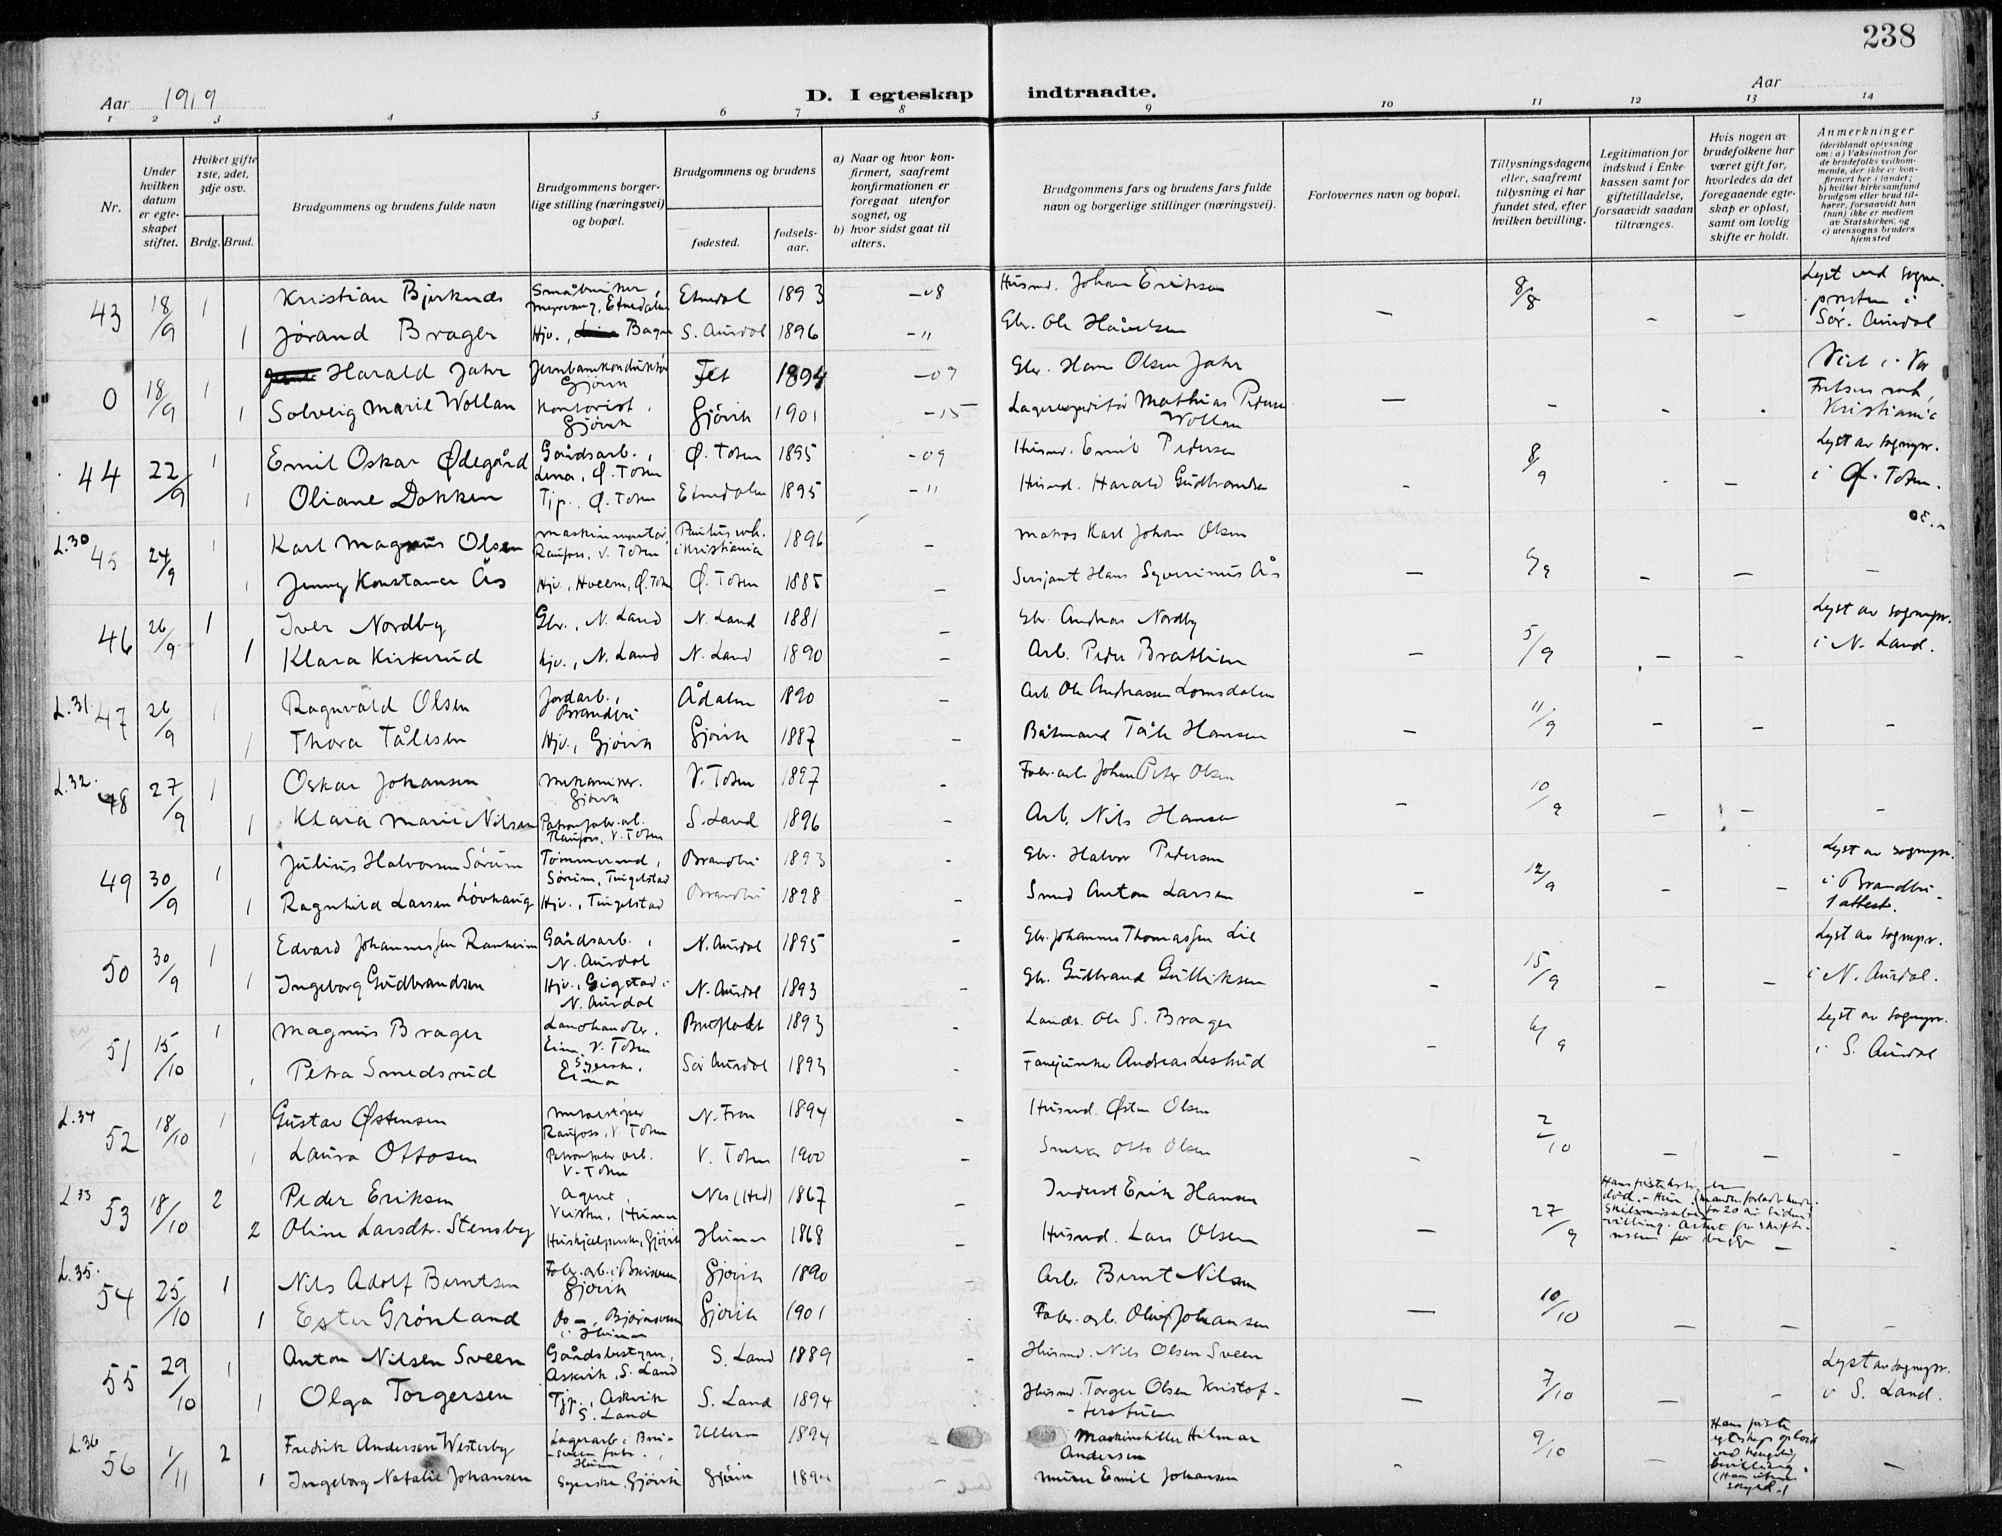 238
Aar 1919
D. I egteskap indtraadte.
Aar
1 2 3 4 5 6 7 8 9 10 11 12 13 14
Nr.
Under hvilken datum er egteskapet stiftet.
Hviket gifte 1ste, 2det, 3dje osv.
Brdg. Brud.
Brudgommens og brudens fulde navn
Brudgommens borgerlige stilling (næringsvei) og bopæl.
Brudgommens og brudens
fødested.
fødselsaar.
a) Naar og hvor konfirmert, saafremt konfirmationen er foregaat utenfor sognet, og
b) hvor sidst gaat til alters.
Brudgommens fars og brudens fars fulde navn og borgerlige stillinger (næringsvei).
Forlovernes navn og bopæl.
Tillysningsdagene eller, saafremt tillysning ei har fundet sted, efter hvilken bevilling.
Legitimation for indskud i Enkekassen samt for giftetilladelse, forsaavidt saadan tiltrænges.
Hvis nogen av brudefolkene har været gift før, hvorledes da det foregaaende egteskap er opløst, samt om lovlig skifte er holdt.
Anmerkninger (deriblandt oplysning om: a) Vaksination for de brudefolks vedkommende, der ikke er konfirmert her i landet; b) hvilket kirkesamfund brudgom eller brud tilhører, forsaavidt han (hun) ikke er medlem av Statskirken; og c) utensogns bruders hjemsted
43 18/9 1 Kristian Bjerknes Småbruker, Etnedalen Etnedal 1893 -08 Husmd. Johan Eriksen 8/8 Lyst ved sogneprsten i Sør. Aurdal
1 Jørand Brager Hjv., Bagn S. Aurdal 1896 -" Gbr. Ole Håvelsen
0 18/9 1 Harald Jahr Jernbanekonduktør Gjøvik Fet 1894 -09 Gbr. Hans Olsen Jahr Viet i Vor Frelsers Kristiania
1 Solveig Marie Wollan Kontorist, Gjøvik Gjövik 1901 -15 Lagerexpeditør Mathias Pedersen Wollan
44 22/9 1 Emil Oskar Ødegård Gårdsarb., Lena, Ø. Toten Ø. Toten 1895 -09 Husmd. Emil Pedersen 8/9 Lyst av sognepr. i Ø. Toten.
1 Oliane Dokken Tjp. Ø. Toten Etnedalen 1895 -" Husmd. Harald Gudbrandsen
L.30 45 24/9 1 Karl Magnus Olsen maskinmontør, Raufoss, V. Toten i Kristiania 1896 - Matros Karl Johan Olsen 6/9
1 Jenny Konstance Ås Hjv., Hveem, Ø. Toten Ø. Toten 1885 - Sersjant Hans Syverinus Ås
46 26/9 1 Iver Nordby Gbr., N. Land N. Land 1881 - Gbr. Andreas Nordby 5/9 Lyst av sognepr. i N. Land.
1 Klara Kirkerud hjv., N. Land N. Land 1890 - Arb. Peder Bratlien
L.31. 47 26/9 1 Ragnvald Olsen Jordarb., Brandbu Ådalen 1890 - Arb. Ole Andreassen Lomsdalen 11/9
1 Thora Tålesen Hjv., Gjövik Gjövik 1887 - Båtmand Tåle Hansen
L.32. 48 27/9 1 Oskar Johansen mekaniker. Gjövik V. Toten 1897 - Fabr. arb. Johan Peter Olsen 10/9
1 Klara Marie Nilsen Patronfabr. arb. Raufoss, V. Toten S. Land 1896 - Arb. Nils Hansen
49 30/9 1 Julius Halvorsen Sörum Tömmermd, Sörum, Tingelstad Brandbu 1893 - Gbr. Halvor Pedersen 12/9 Lyst av sognepr. i Brandbu - 1 attest.
1 Ragnhild Larsen Lövhaug Hjv., Tingelstad Brandbu 1898 - Smed Anton Larsen
50 30/9 1 Edvard Johannessen Ranheim Gårdsarb., N. Aurdal N. Aurdal 1895 - Gbr. Johannes Thomassen Lie 15/9 Lyst av sognepr. i N. Aurdal.
1 Ingeborg Gudbrandsen Hjv., Gigstad i N. Aurdal N. Aurdal 1893 - Gbr. Gudbrand Gulliksen
51 15/10 1 Magnus Brager Landhandler, Eina, V. Toten Bruflat 1893 Landh. Ole S. Brager 6/9 Lyst av sognepr. i S. Aurdal
1 Petra Smedsrud Syerske, Eina Sør Aurdal 1893 - Fanejunker Andreas
L.34 52 18/10 1 Gustav Østensen Raufoss, V. Toten N. Fron 1894 Husmd. Østen Olsen 2/10
1 Laura Ottosen Patronfabr. arb. V. Toten V. Toten 1900 - Snekker Otto Olsen
L.33 53 18/10 2 Peder Eriksen Agent, Nes (Hed) 1867 Inderst Erik Hansen 27/9
2 Oline Larsdtr. Stensby Gjövik 1868 - Husmd. Lars Olsen
L.35. 54 25/10 1 Nils Adolf Berntsen Gjövik Gjövik 1890 - Arb. Bernt Nilsen 10/10
1 Ester Grönland Do -, Gjövik 1901 Fabr. arb. Oluf Johansen
55 29/10 1 Anton Nilsen Sveen Gårdsbestyrer, Askvik, S. Land S. Land 1889 - Husmd. Nils Olsen Sveen 7/10 Lyst av sognepr. i S. Land.
1 Olga Torgersen Tjp., Askvik S. Land S. Land 1894 Husmd. Torger Olsen Kristofferstuen
L.36 56 1/11 2 Fredrik Andersen Westerby Lagerarb. i 1894 Maskinstiller Hilmar Andersen 9/10
1 Ingeborg Natalie Johansen Syerske, Gjövik Gjövik - Murer Emil Johansen